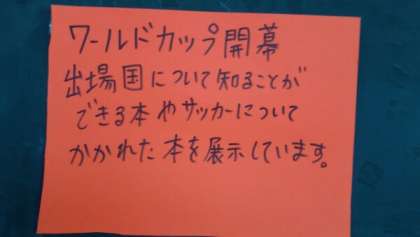 ワールドカップ開幕
出場国について知ることが
できる本やサッカーについて
かかれた本を展示しています。